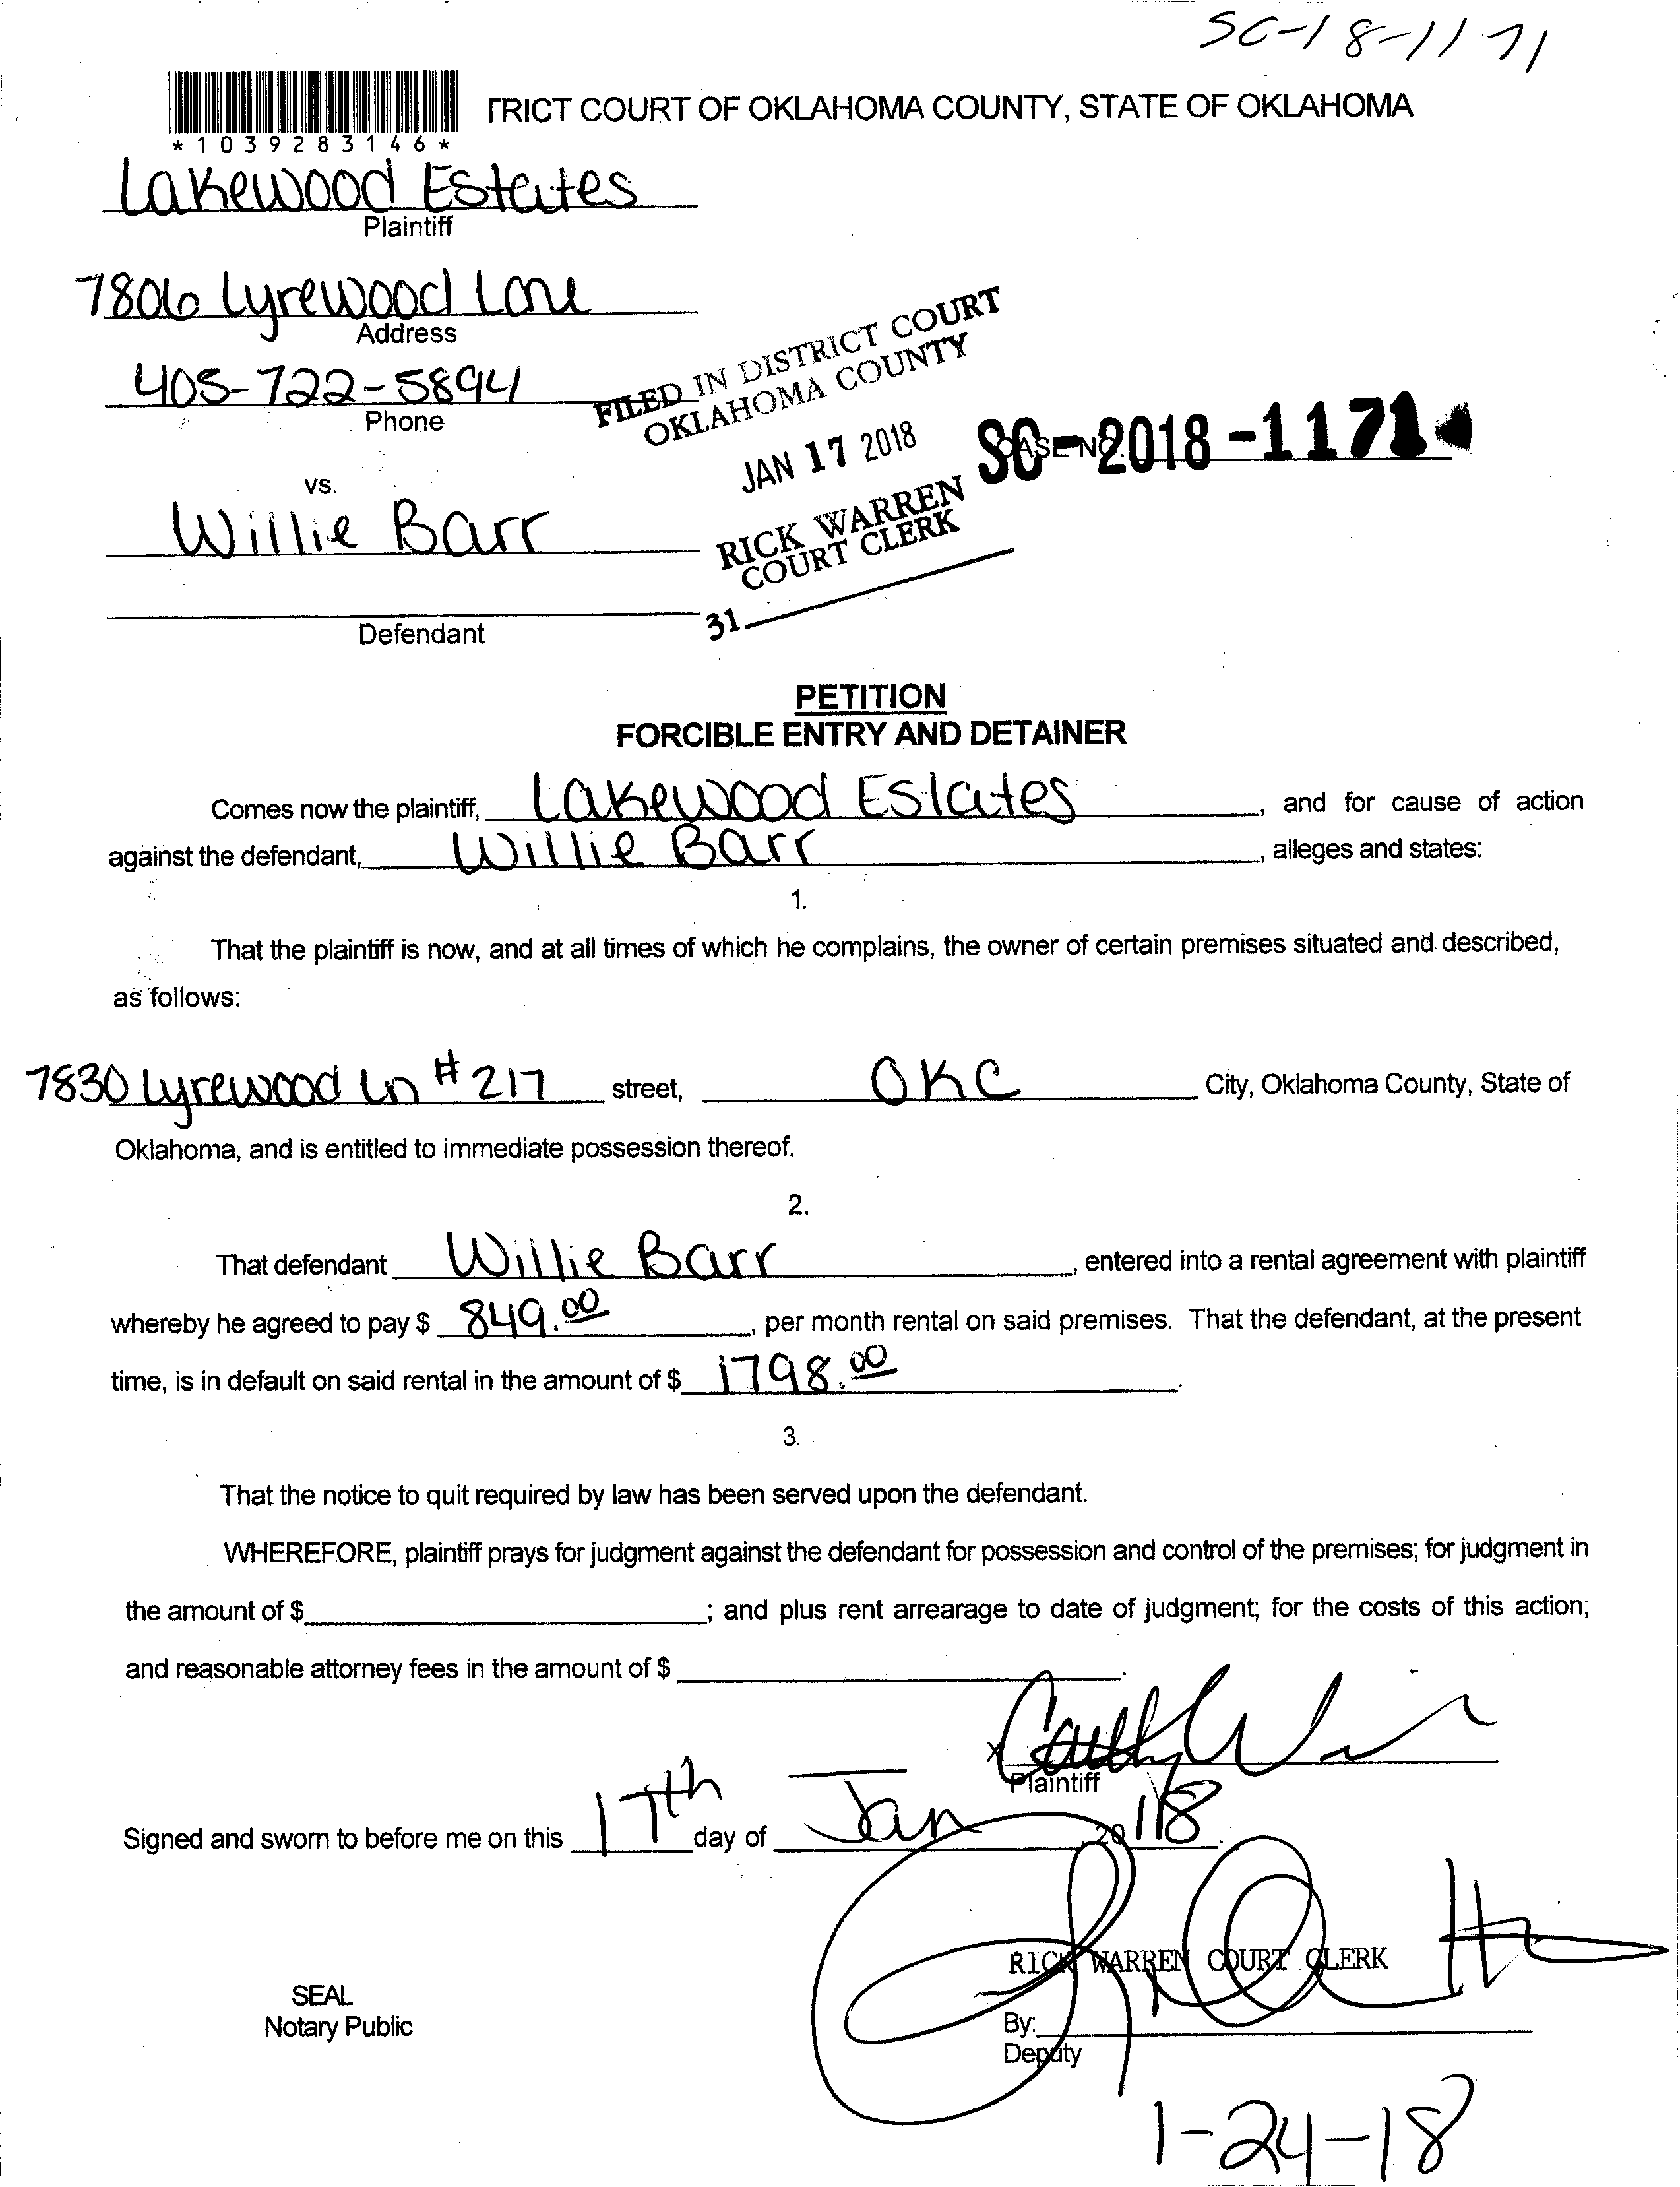 SC-18-1171
TRICT COURT OF OKLAHOMA COUNTY, STATE OF OKLAHOMA
*1039283146*
Lakewood Estates
Plaintiff
7806 Lyrewood Lane
Address
405-722-5894
Phone
FILED IN DISTRICT COURT
OKLAHOMA COUNTY
JAN 17 2018
RICK WARREN
COURT CLERK
31
CASE NO.
SC-2018-1171
vs.
Willie Barr
Defendant
PETITION
FORCIBLE ENTRY AND DETAINER
Comes now the plaintiff, Lakewood Estates, and for cause of action
against the defendant, Willie Barr, alleges and states:
1.
That the plaintiff is now, and at all times of which he complains, the owner of certain premises situated and described,
as follows:
7830 Lyrewood Ln #217 street, OKC City, Oklahoma County, State of
Oklahoma, and is entitled to immediate possession thereof.
2.
That defendant Willie Barr, entered into a rental agreement with plaintiff
whereby he agreed to pay $ 849.00, per month rental on said premises. That the defendant, at the present
time, is in default on said rental in the amount of $ 1798.00.
3.
That the notice to quit required by law has been served upon the defendant.
WHEREFORE, plaintiff prays for judgment against the defendant for possession and control of the premises; for judgment in
the amount of $; and plus rent arrearage to date of judgment; for the costs of this action;
and reasonable attorney fees in the amount of $.
x
Plaintiff
Signed and sworn to before me on this 17th day of Jan, 2018.
RICK WARREN COURT CLERK
SEAL
Notary Public
By:
Deputy
1-24-18